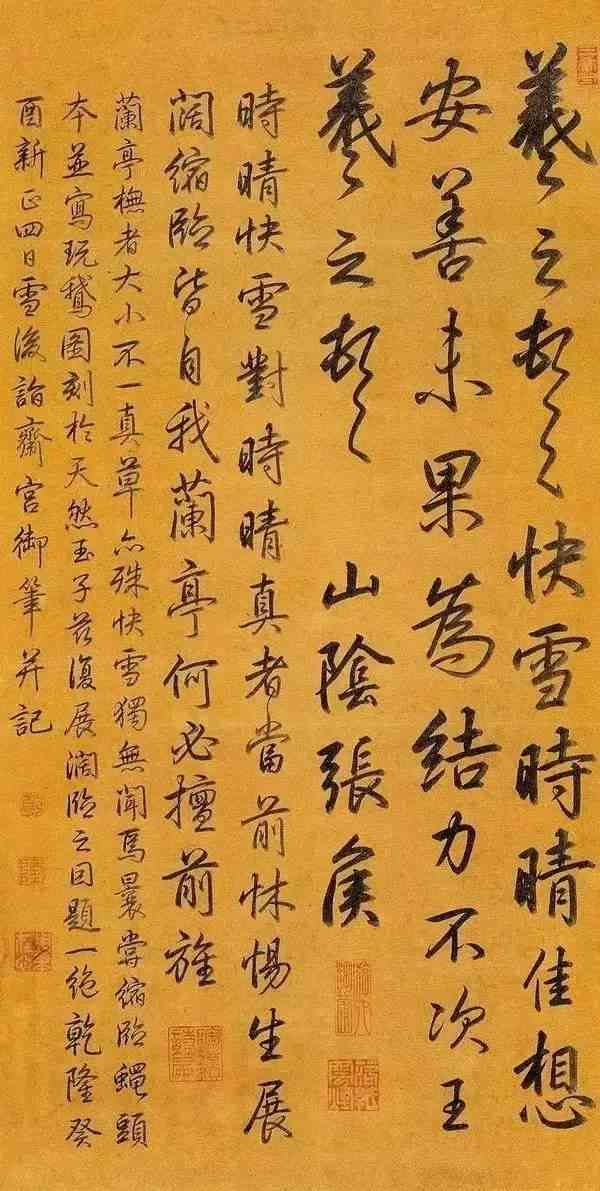 羲之頓首快雪時晴佳想
安善未果為結力不次王
羲之頓首 山陰張侯
時晴快雪對時晴真者當前怵惕生展
闊縮臨皆自我蘭亭何必擅前旌
蘭亭橅者大小不一真草亦殊快雪獨無聞焉曩嘗縮臨蠅頭
本並寫玩鵞圖刻於天然玉子茲復展濶臨之因題一絕乾隆癸
酉新正四日雪後詣齋宮御筆并記